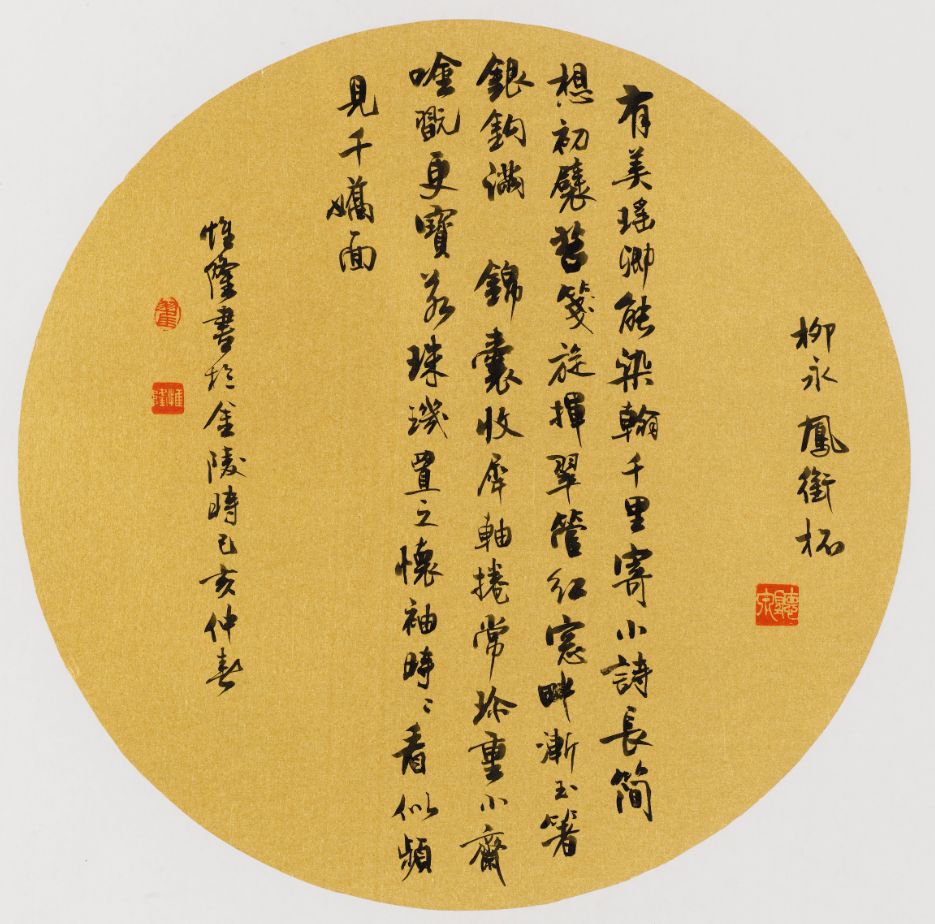 柳永 鳳銜杯
有美瑤卿能染翰千里寄小詩長簡
想初襞苔箋旋揮翠管紅窻畔漸玉箸
銀鉤滿 錦囊收犀軸捲常珍重小齋
唫翫更寶若珠璣置之懷袖時〻看似頻
見千嬌面
惟隆書於金陵時己亥仲春
惟隆